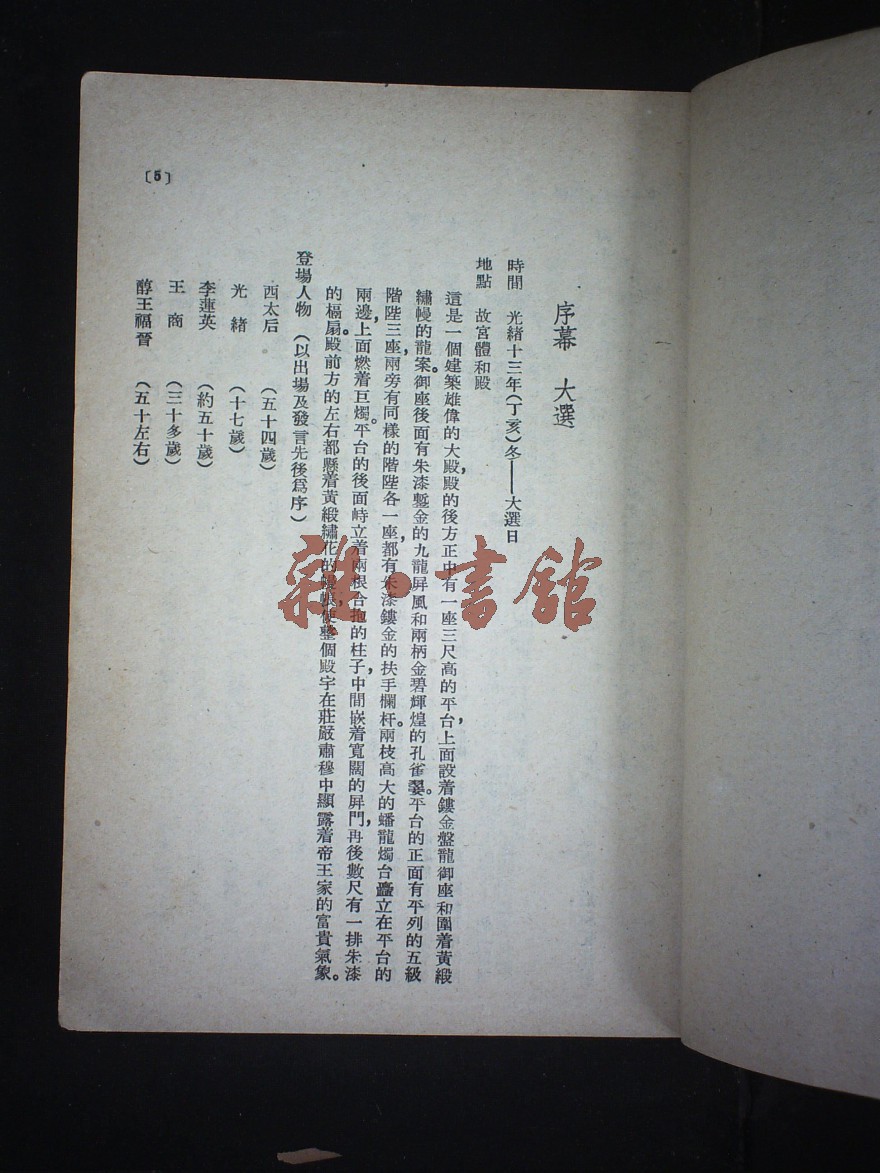 序幕　大選
時間　光緒十三年(丁亥)冬——大選日
地點　故宮體和殿
這是一個建築雄偉的大殿，殿的後方正中有一座三尺高的平台，上面設着鏤金盤龍御座和圍着黃緞
繡幔的龍案。御座後面有朱漆鏨金的九龍屏風和兩柄金碧輝煌的孔雀翣。平台的正面有平列的五級
階陛三座，兩旁有同樣的階陛各一座，都有朱漆鏤金的扶手欄杆。兩枝高大的蟠龍燭台矗立在平台的
兩邊，上面燃着巨燭。平台的後面峙立着兩根合抱的柱子，中間嵌着寬闊的屏門，再後數尺有一排朱漆
的槅扇。殿前方的左右都懸着黃緞繡花的，使整個殿宇在莊嚴肅穆中顯露着帝王家的富貴氣象。
登場人物　(以出場及發言先後爲序)
西太后　(五十四歲)
光緒　(十七歲)
李蓮英　(約五十歲)
王商　(三十多歲)
醇王福晉　(五十左右)
〔5〕
雜·書館